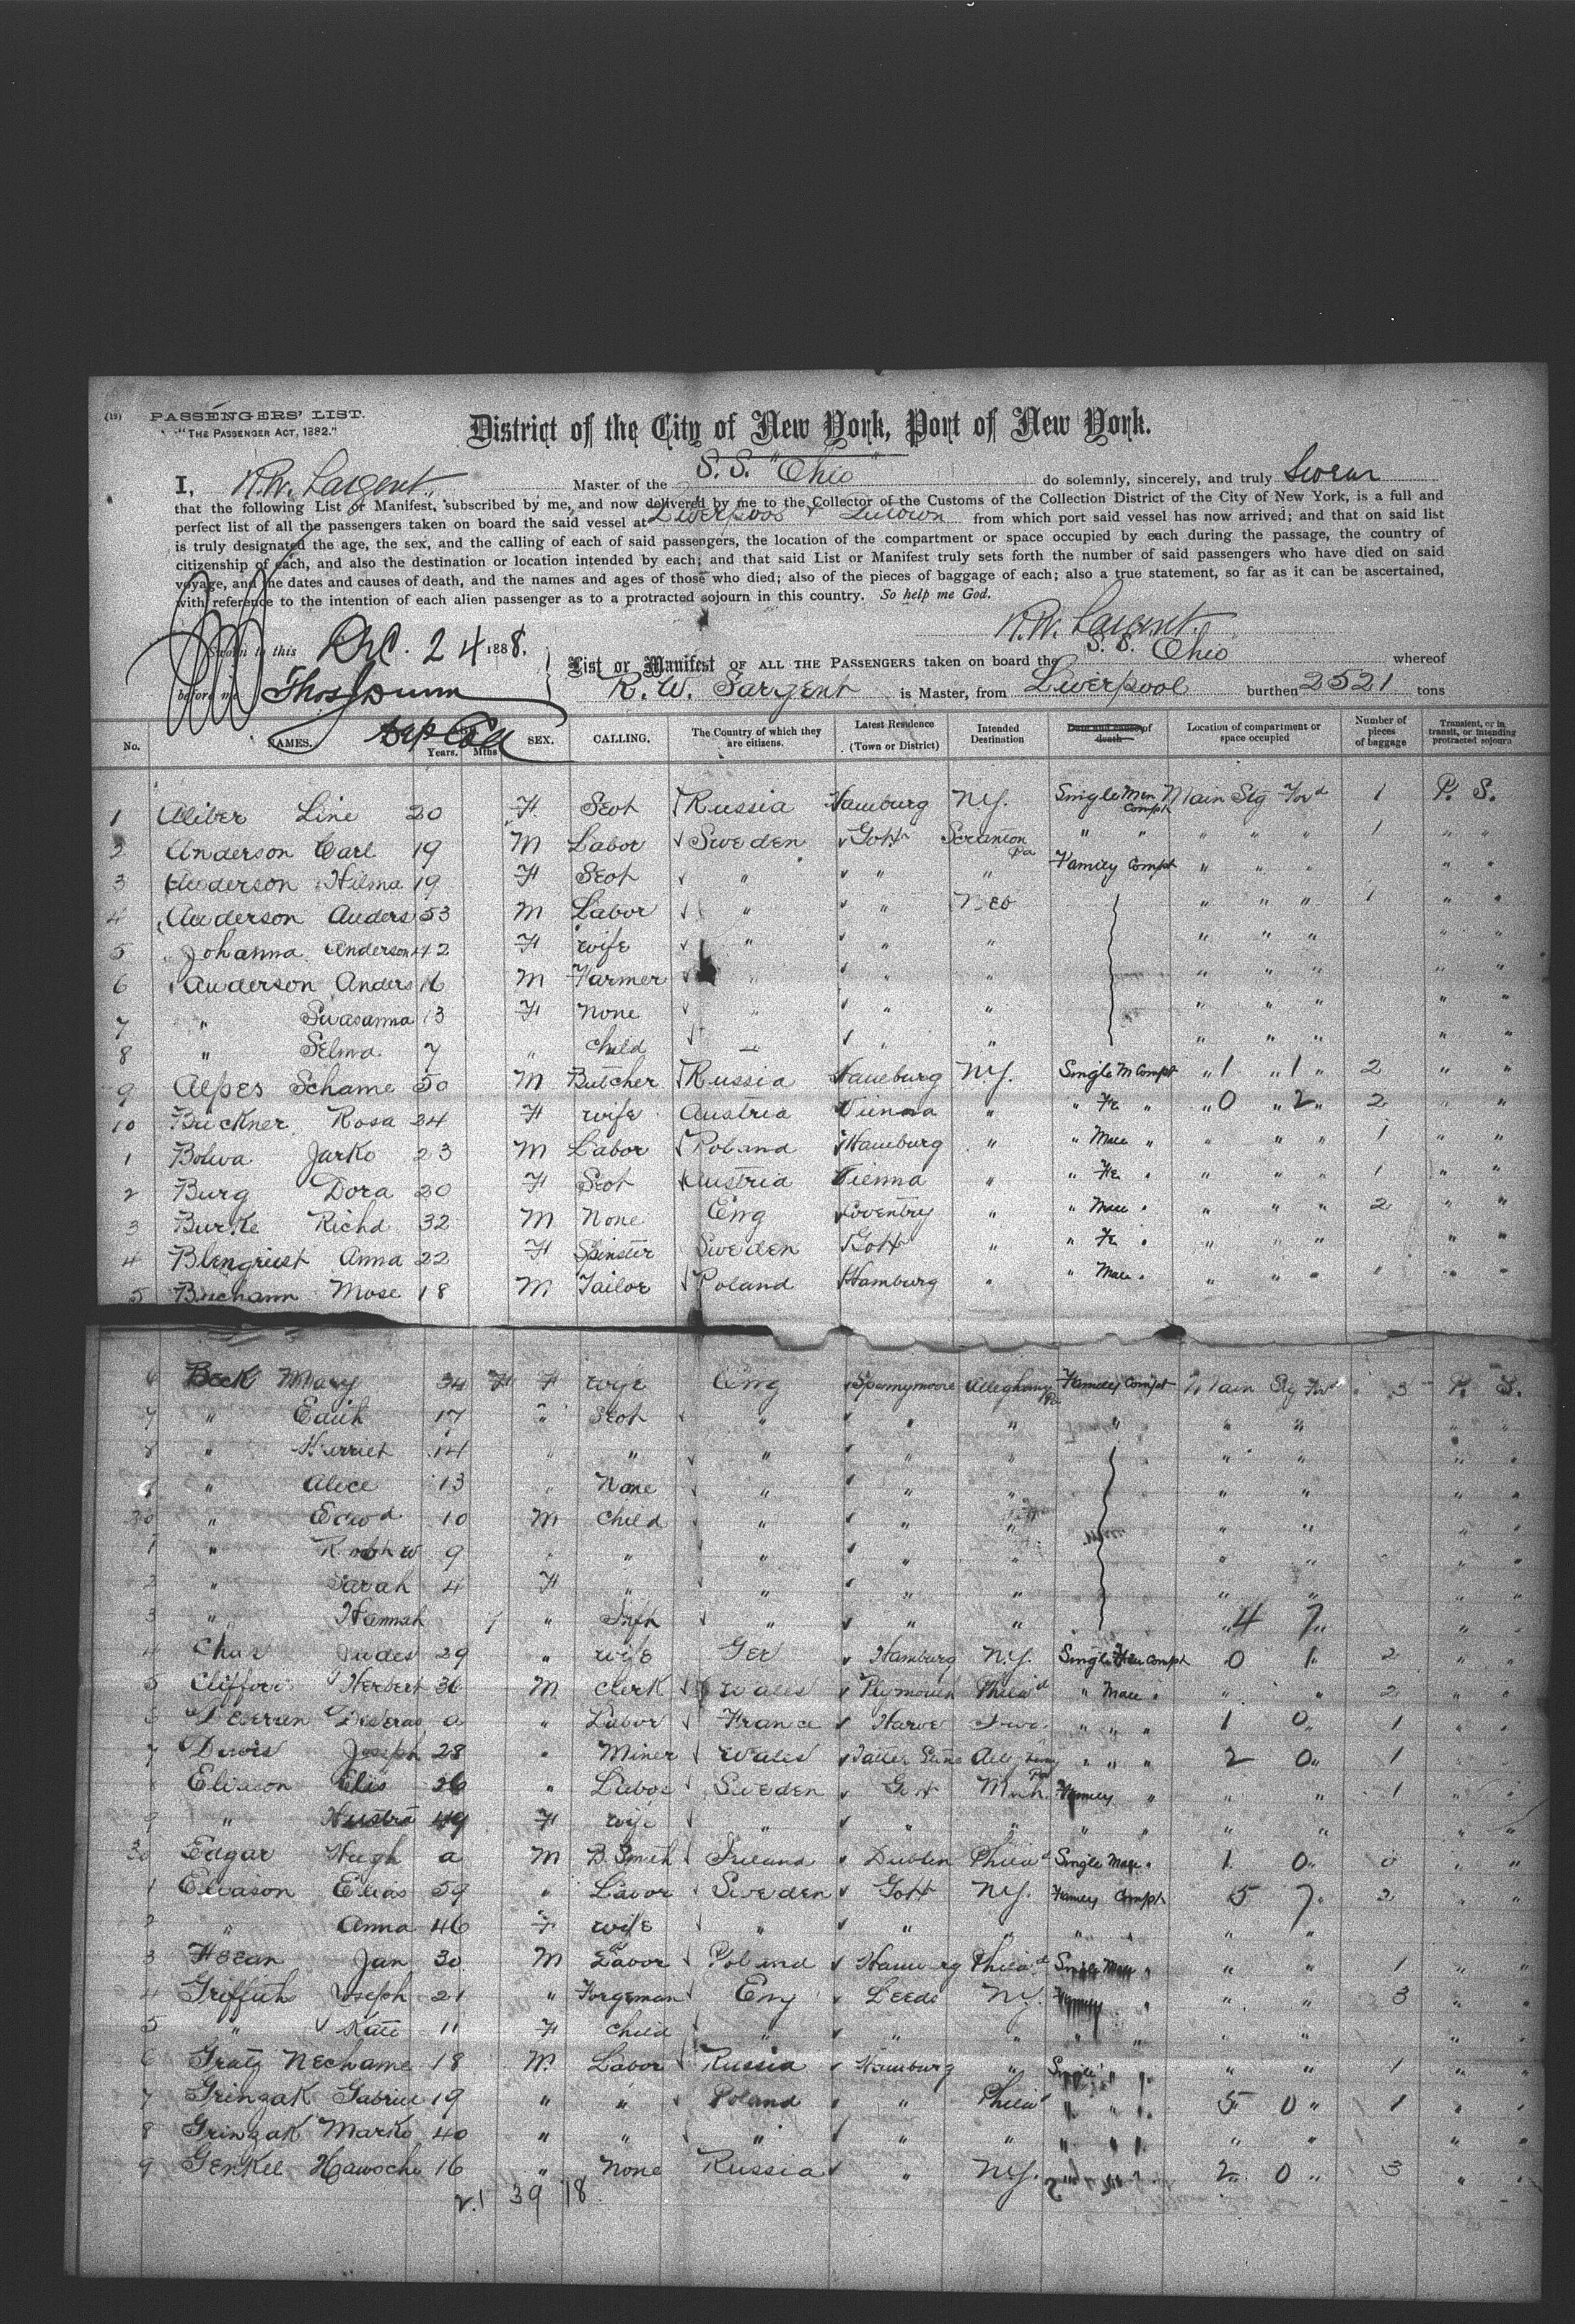 (18) PASSENGERS' LIST.
"THE PASSENGER ACT, 1882."
District of the City of New York, Port of New York.
I, R.W. Sargent Master of the S. S. "Ohio" do solemnly, sincerely, and truly Swear
that the following List or Manifest, subscribed by me, and now delivered by me to the Collector of the Customs of the Collection District of the City of New York, is a full and
perfect list of all the passengers taken on board the said vessel at Liverpool from which port said vessel has now arrived; and that on said list
is truly designated the age, the sex, and the calling of each of said passengers, the location of the compartment or space occupied by each during the passage, the country of
citizenship of each, and also the destination or location intended by each; and that said List or Manifest truly sets forth the number of said passengers who have died on said
voyage, and the dates and causes of death, and the names and ages of those who died; also of the pieces of baggage of each; also a true statement, so far as it can be ascertained,
with reference to the intention of each alien passenger as to a protracted sojourn in this country. So help me God.
R.W. Sargent
Sworn to this Dec. 24 1888.
List or Manifest OF ALL THE PASSENGERS taken on board the S. S. Ohio whereof
before me
R. W. Sargent is Master, from Liverpool burthen 2521 tons
No. NAMES. Years. Mths SEX. CALLING. The Country of which they are citizens. Latest Residence (Town or District) Intended Destination Date and cause of death Location of compartment or space occupied Number of pieces of baggage Transient, or in transit, or intending protracted sojourn
1 Aliber Line 20 F. Scot Russia Hamburg N.Y. Single Men Compt Main Stg Fwd 1 P. S.
2 Anderson Carl 19 M Labor Sweden Gott Scranton Pa " " " " " 1 " "
3 Anderson Hilma 19 F Scot " " " Family Compt " " " " "
4 Anderson Anders 53 M Labor " " Neb " " " 1 " "
5 Johanna Anderson 42 F wife " " " " " " " "
6 Anderson Anders 16 M Farmer " " " " " " " "
7 " Swasanna 13 F None " " " " " " " "
8 " Selma 7 " child " " " " " " " "
9 Alpes Schame 50 M Butcher Russia Hamburg N.Y. Single M Compt " 1 " 1 " 2 " "
10 Buckner Rosa 24 F wife Austria Vienna " " Fe " " 0 " 2 " 2 " "
1 Bolwa Jarko 23 M Labor Poland Hamburg " " Male " " " " 1 " "
2 Burg Dora 20 F Scot Austria Vienna " " Fe " " " " 1 " "
3 Burke Richd 32 M None Eng Coventry " " Male " " " " 2 " "
4 Anna 22 F Spinster Sweden Gott " " Fe " " " " " "
5 Buchann Mose 18 M Tailor Poland Hamburg " " Male " " " " " " "
6 Beck Mary 34 F wife Eng Spennymoore Alleghany Pa Family Compt Main Stg Fwd 3 P. S.
7 " Edith 17 " Scot " " " " " " " "
8 " Harriet 14 " " " " " " " " "
9 " Alice 13 " None " " " " " " "
20 " Edwd 10 M child " " " " " " "
1 " 9 " " " " " " " " "
2 " Sarah 4 F " " " " " " " "
3 " Hannah 7 " Inft " " " " 4 7 " " "
4 29 " wife Ger Hamburg N.Y. Single Fem Compt 0 1 " 2 " "
5 Clifford Herbert 36 M Clerk Wales Plymouth Philad " Male " " " 2 " "
6 a " Labor France Harve " " " 1 0 " 1 " "
7 Davis Joseph 28 " Miner Wales Pa " " " 2 0 " 1 " "
Eliason Elis 26 " Labor Sweden Gott Family " " " 1 " "
9 " 49 F wife " " " " " " " " "
30 Edgar Hugh a M B. Smith Ireland Dublin Philad Single Male " 1 0 " 0 " "
1 Eliason Elias 59 " Labor Sweden Gott N.Y. Family Compt 5 7 " 2 " "
2 " Anna 46 F wife " " " " " " " " "
3 Jan 30 M Labor Poland Hamburg Philad Single Male " " " 1 " "
4 Griffith Joseph 21 " Forgeman Eng Leeds N.Y. Family " " " 3 " "
5 " Kate 11 F child " " " " " " " " "
6 Gratz Nechame 18 M. Labor Russia Hamburg " Single " " " 1 " "
7 Grinzak Gabriel 19 " " Poland " Philad " " 5 0 " 1 " "
8 Grinzak Marko 40 " " " " " " " " " " "
9 Genkee Hawsche 16 " None Russia " N.Y. 2 0 " 3 " "
21 39 18